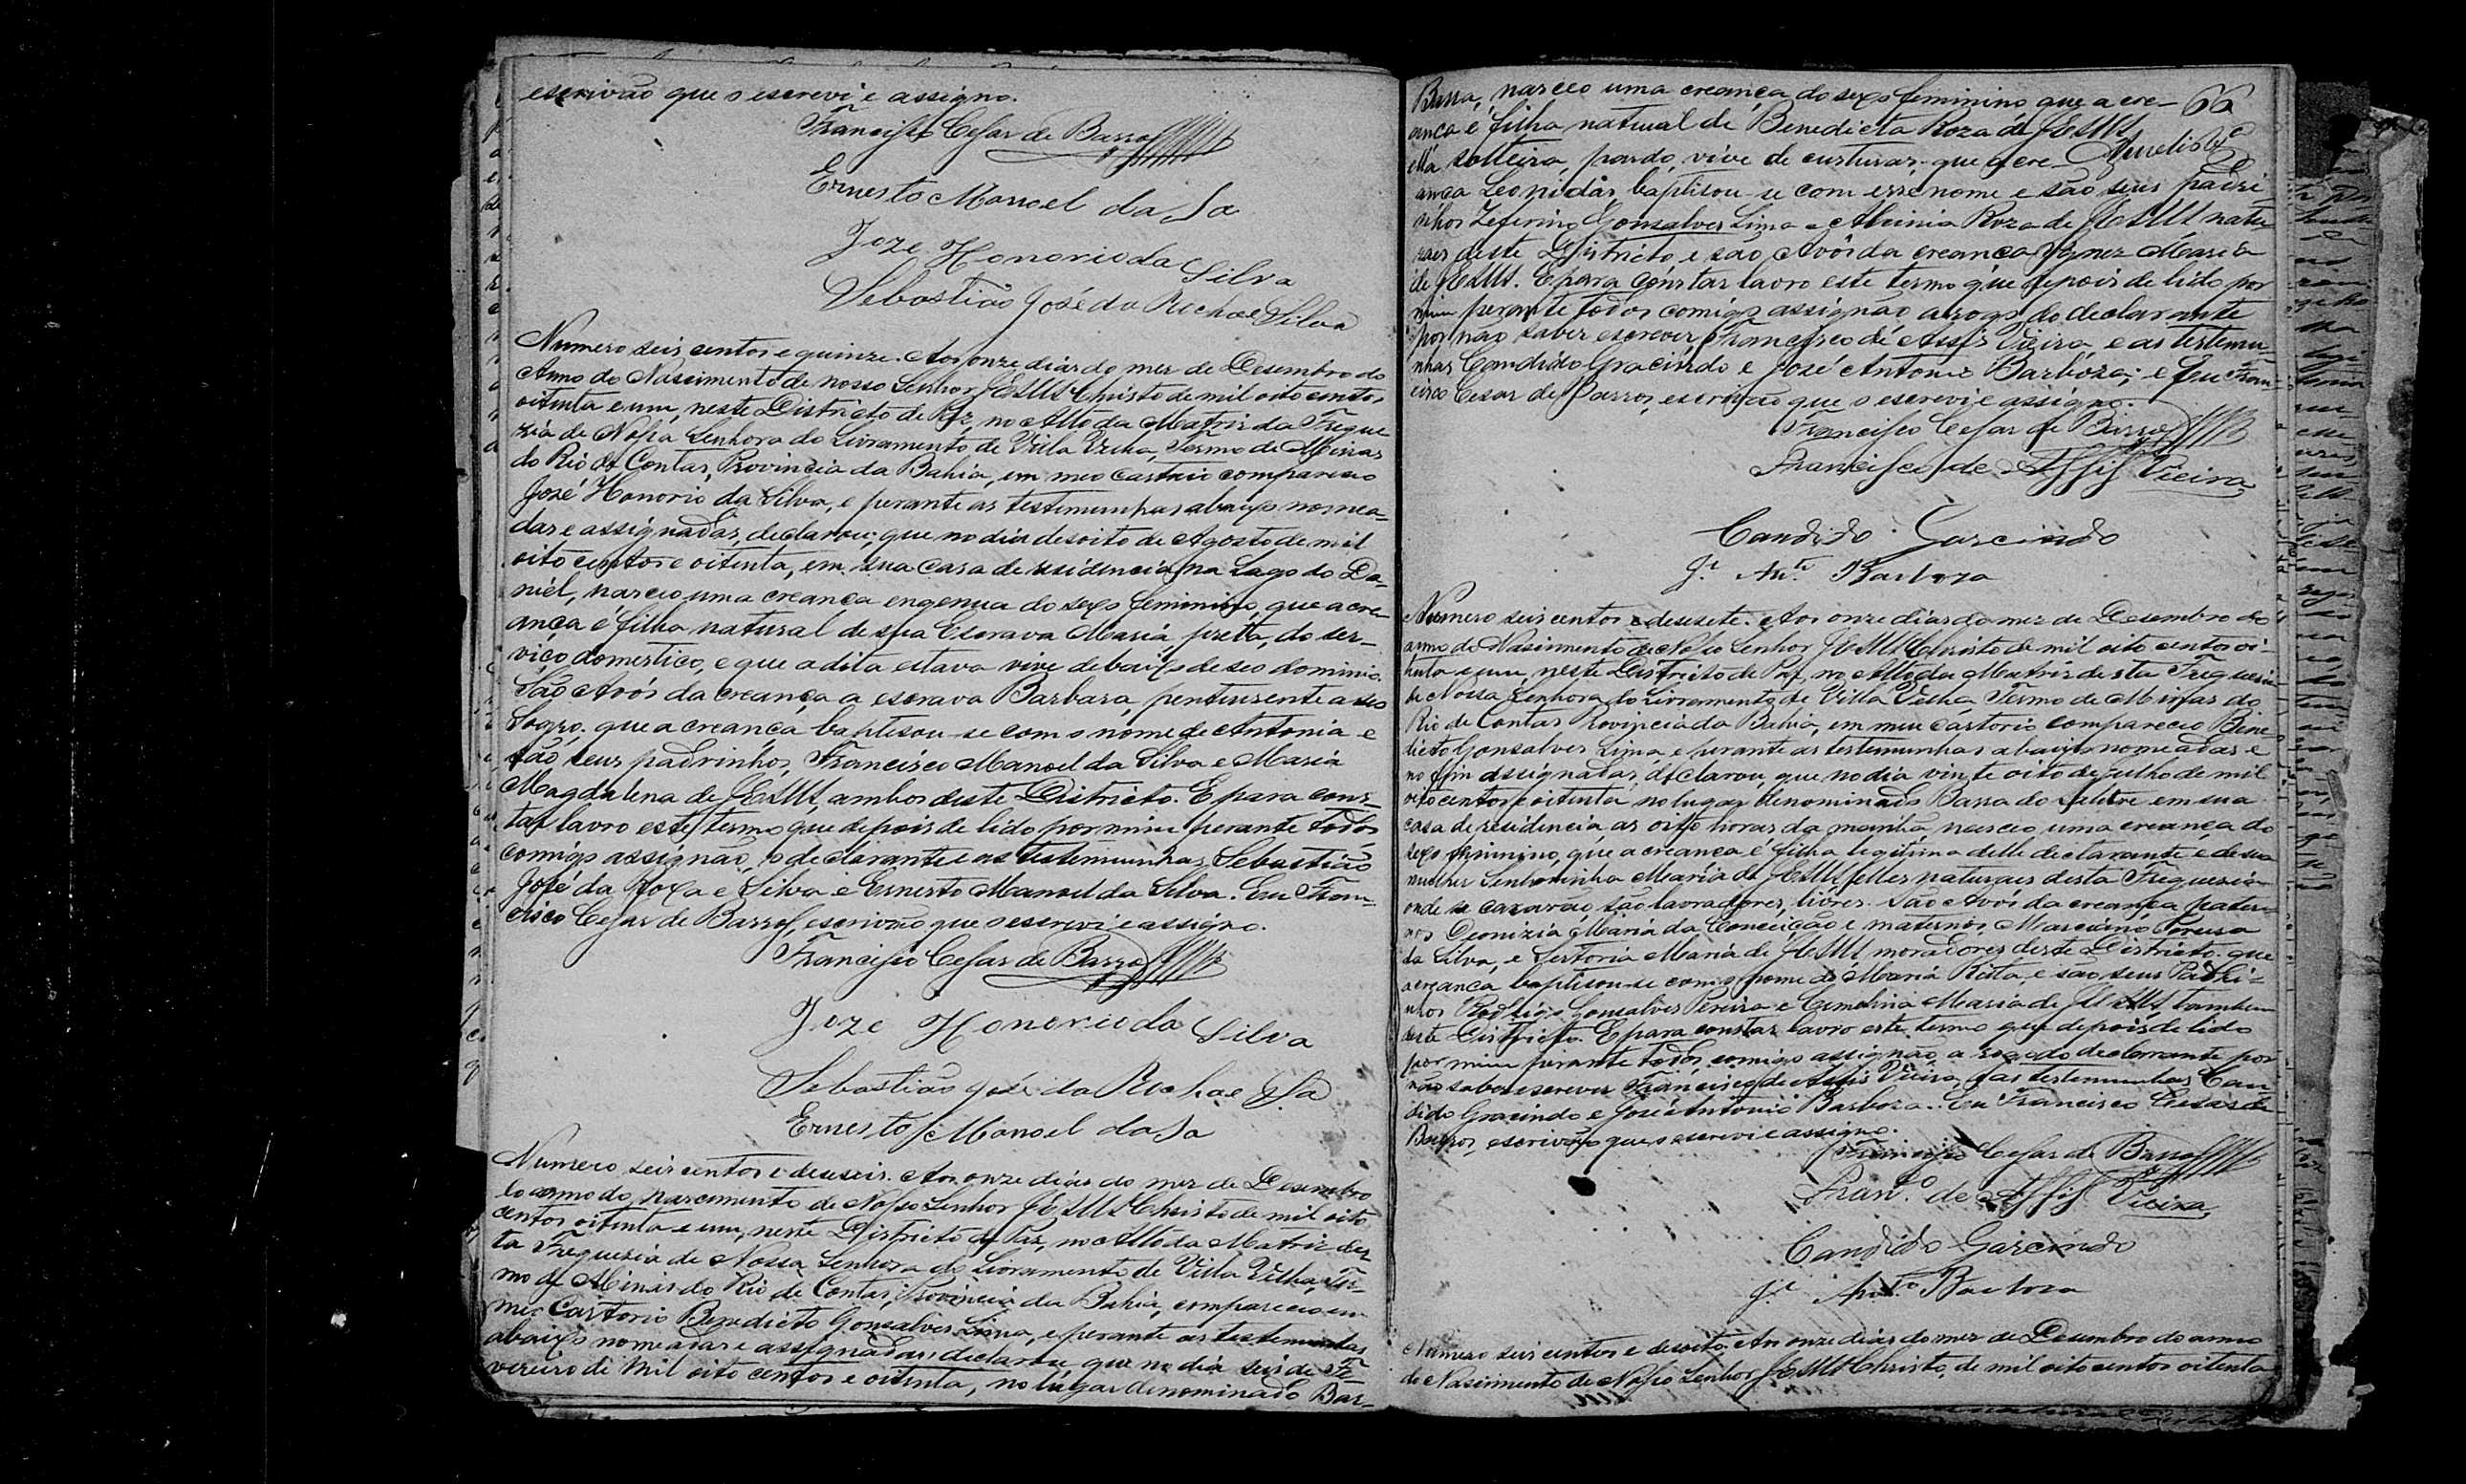 escrivão que o escrevi e assigno.
Francisco Cesar de Barros
Ernesto Manoel da Sa
Joze Honorio da Silva
Sebastião José da Rocha e Silva
Numero seis centos e quinze. Aos onze dias do mez de Desembro do
Anno do Nascimento de nosso Senhor JESUS Christo de mil oito centos
oitenta e um, neste Districto de Paz, no Alto da Matriz da Fregue
zia de Nossa Senhora do Livramento de Villa Velha, Termo de Minas
do Rio de Contas, Provincia da Bahia, em meo Cartorio compareceo
José Honorio da Silva, e perante as testemunhas abaixo nomea-
das e assignadas, declarou, que no dia desoito de Agosto de mil
oito centos e oitenta, em sua casa de residencia na Lagoa do Da-
niel, nasceo uma creança engenua do sexo feminino, que a cre-
ança é filha natural de sua Escrava Maria, preta, do ser-
viço domestico, e que a dita escrava vive debaixo de seo dominio.
São Avós da creança a escrava Barbara, pertencente a seo
Sogro. que a creança baptisou-se com o nome de Antonia e
são seus padrinhos, Francisco Manoel da Silva e Maria
Magdalena de JESUS ambos deste Districto. E para cons-
tar lavro este termo que depois de lido por mim perante todos
comigo assignão, o declarante e as testemunhas, Sebastião
José da Roxa e Silva e Ernesto Manoel da Silva. Eu Fran-
cisco Cesar de Barros, escrivão que o escrevi e assigno.
Francisco Cesar de Barros
Joze Honorio da Silva
Sebastião José da Rocha e Sa
Ernesto Manoel da Sa
Numero seis centos e deseseis. Aos onze dias do mez de Desembro
do anno do nascimento de Nosso Senhor JESUS Christo de mil oito
centos oitenta e um, neste Districto de Paz, no Alto da Matriz des
ta Freguezia de Nossa Senhora do Livramento de Villa Velha, Ter-
mo de Minas do Rio de Contas, Provincia da Bahia, compareceo em
meo Cartorio Benedicto Gonsalves Lima, e perante as testemunhas
abaixo nomeadas e assignadas, declarou que no dia seis de Fe-
vereiro de mil oito centos e oitenta, no lugar denominado Bar-
66
Barra, nasceo uma creança do sexo feminino que a cre-
ança é filha natural de Benedicta Roza de JESUS,
ella solteira, parda, vive de custuras; que a cre-
ança Leonidas baptisou-se com esse nome e são seus padri
nhos Zeferino Gonsalves Lima e Roza de JESUS natu
raes deste Districto e são Avós da creança Ignez Maria
de JESUS. E para constar lavro este termo que depois de lido por
mim perante todos comigo assignão a rogo do declarante
por não saber escrever, Francisco de Assis Vieira e as testemu-
nhas Candido Gracindo e José Antonio Barboza; e Eu Fran-
cisco Cesar de Barros, escrivão que o escrevi e assigno.
Francisco Cesar de Barros
Francisco de Assis Vieira
Candido Garcindo
Je. Anto. Barboza
Numero seis centos e desesete. Aos onze dias do mez de Desembro do
anno do Nascimento de Nosso Senhor JESUS Christo de mil oito centos oi-
tenta e um, neste Districto de Paz, no Alto da Matriz desta Freguezia
de Nossa Senhora do Livramento de Villa Velha Termo de Minas do
Rio de Contas Provincia da Bahia, em meu cartorio compareceo Bene
dicto Gonsalves Lima, e perante as testemunhas abaixo nomeadas e
no fim assignadas, declarou, que no dia vinte oito de Julho de mil
oito centos e oitenta no lugar denominado Barra do Salitre em sua
casa de residencia as oito horas da manhã, nasceo uma creança do
sexo feminino, que a creança é filha legitima delle declarante e de sua
mulher Senhorinha Maria de JESUS elles naturaes desta Freguezia
onde se cazarão, são lavradores, livres. São Avós da creança pater-
nos Deonizia Maria da Conceição e maternos Marciano
da Silva, e Maria de JESUS moradores deste Districto. que
a creança baptisou-se com o nome de Maria Ritta, e são seus Padri-
nhos Rodrigo Gonsalves Pereira e Maria de JESUS, tambem
deste Districto. E para constar lavro este termo que depois de lido
por mim perante todos, comigo assignão a rogo do declarante por
não saber escrever Francisco de Assis Vieira, e as testemunhas Can
dido Gracindo e José Antonio Barboza. Eu Francisco Cesar de
Barros, escrivão que o escrevi e assigno.
Francisco Cesar de Barros
Franco. de Assis Vieira
Candido Garcindo
Je. Anto. Barboza
Numero seis centos e desoito. Aos onze dias do mez de Desembro do anno
do Nascimento de Nosso Senhor JESUS Christo, de mil oito centos oitenta